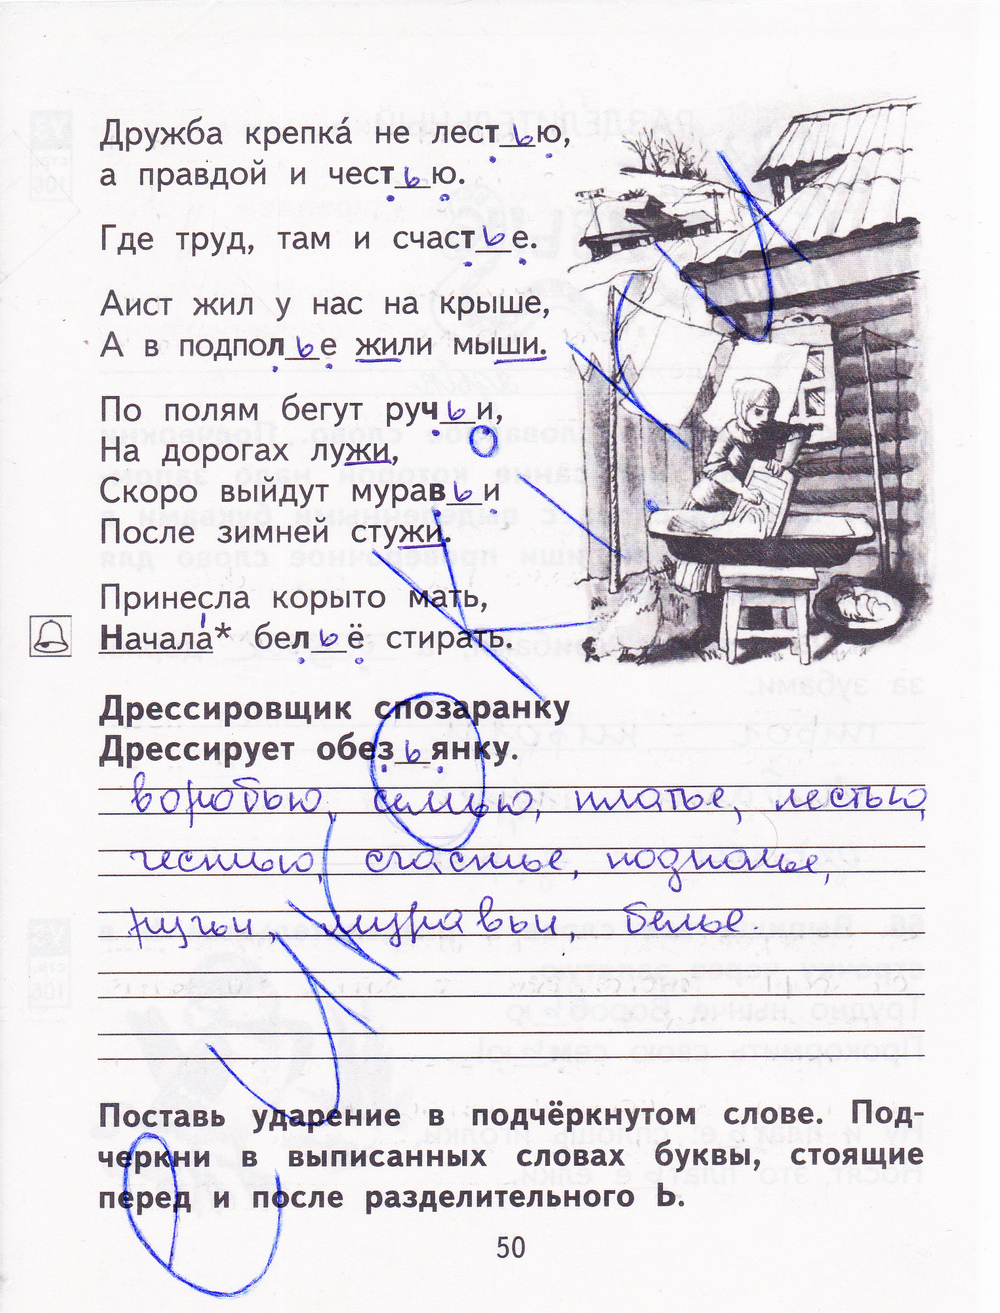 Дружба крепка́ не лестью,
а правдой и честью.
Где труд, там и счастье.
Аист жил у нас на крыше,
А в подполье жили мыши.
По полям бегут ручьи,
На дорогах лужи,
Скоро выйдут муравьи
После зимней стужи.
Принесла корыто мать,
Начала́* бельё стирать.
Дрессировщик спозаранку
Дрессирует обезьянку.
воробью, семью, платье, лестью,
честью, счастье, подполье,
ручьи, муравьи, белье
Поставь ударение в подчёркнутом слове. Под-
черкни в выписанных словах буквы, стоящие
перед и после разделительного Ь.
50